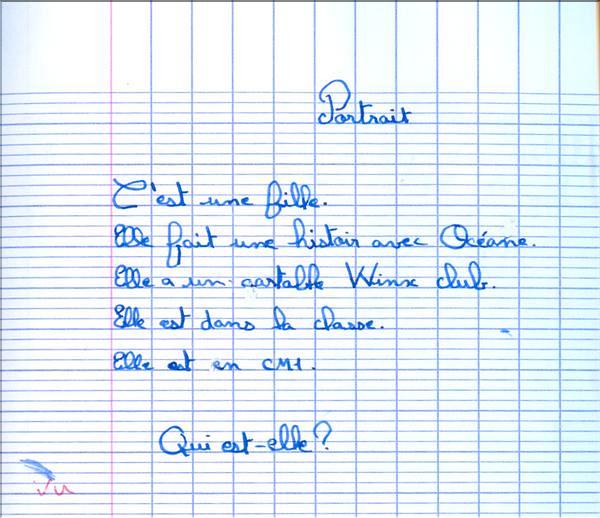 Portrait
C'est une fille.
Elle fait une histoir avec Océane.
Elle a un cartable Winx club.
Elle est dans la classe.
Elle est en CM1.
Qui est-elle?
Vu